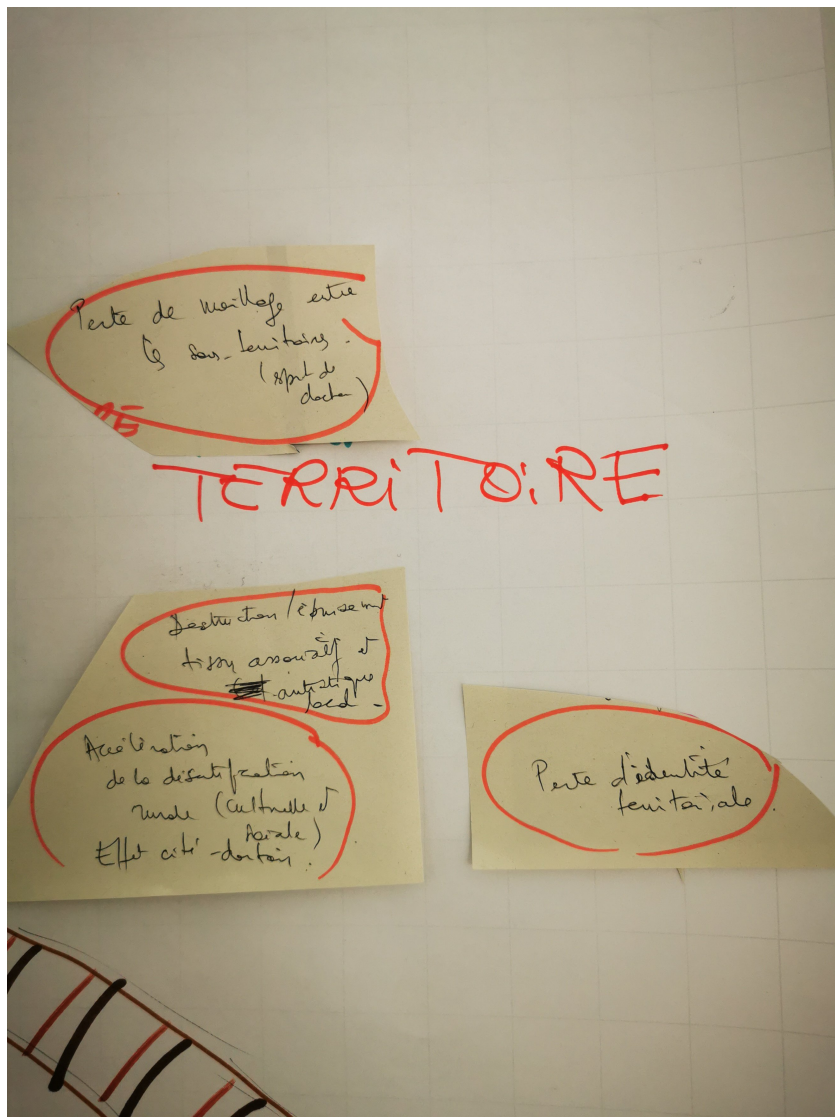 Perte de maillage entre
les sous-territoires.
(esprit de
clocher)
TERRITOIRE
Destruction/épuisement
tissu associatif et
artistique
local.
Accélération
de la désertification
rurale (culturelle et
sociale)
Effet cité-dortoir.
Perte d'identité
territoriale.